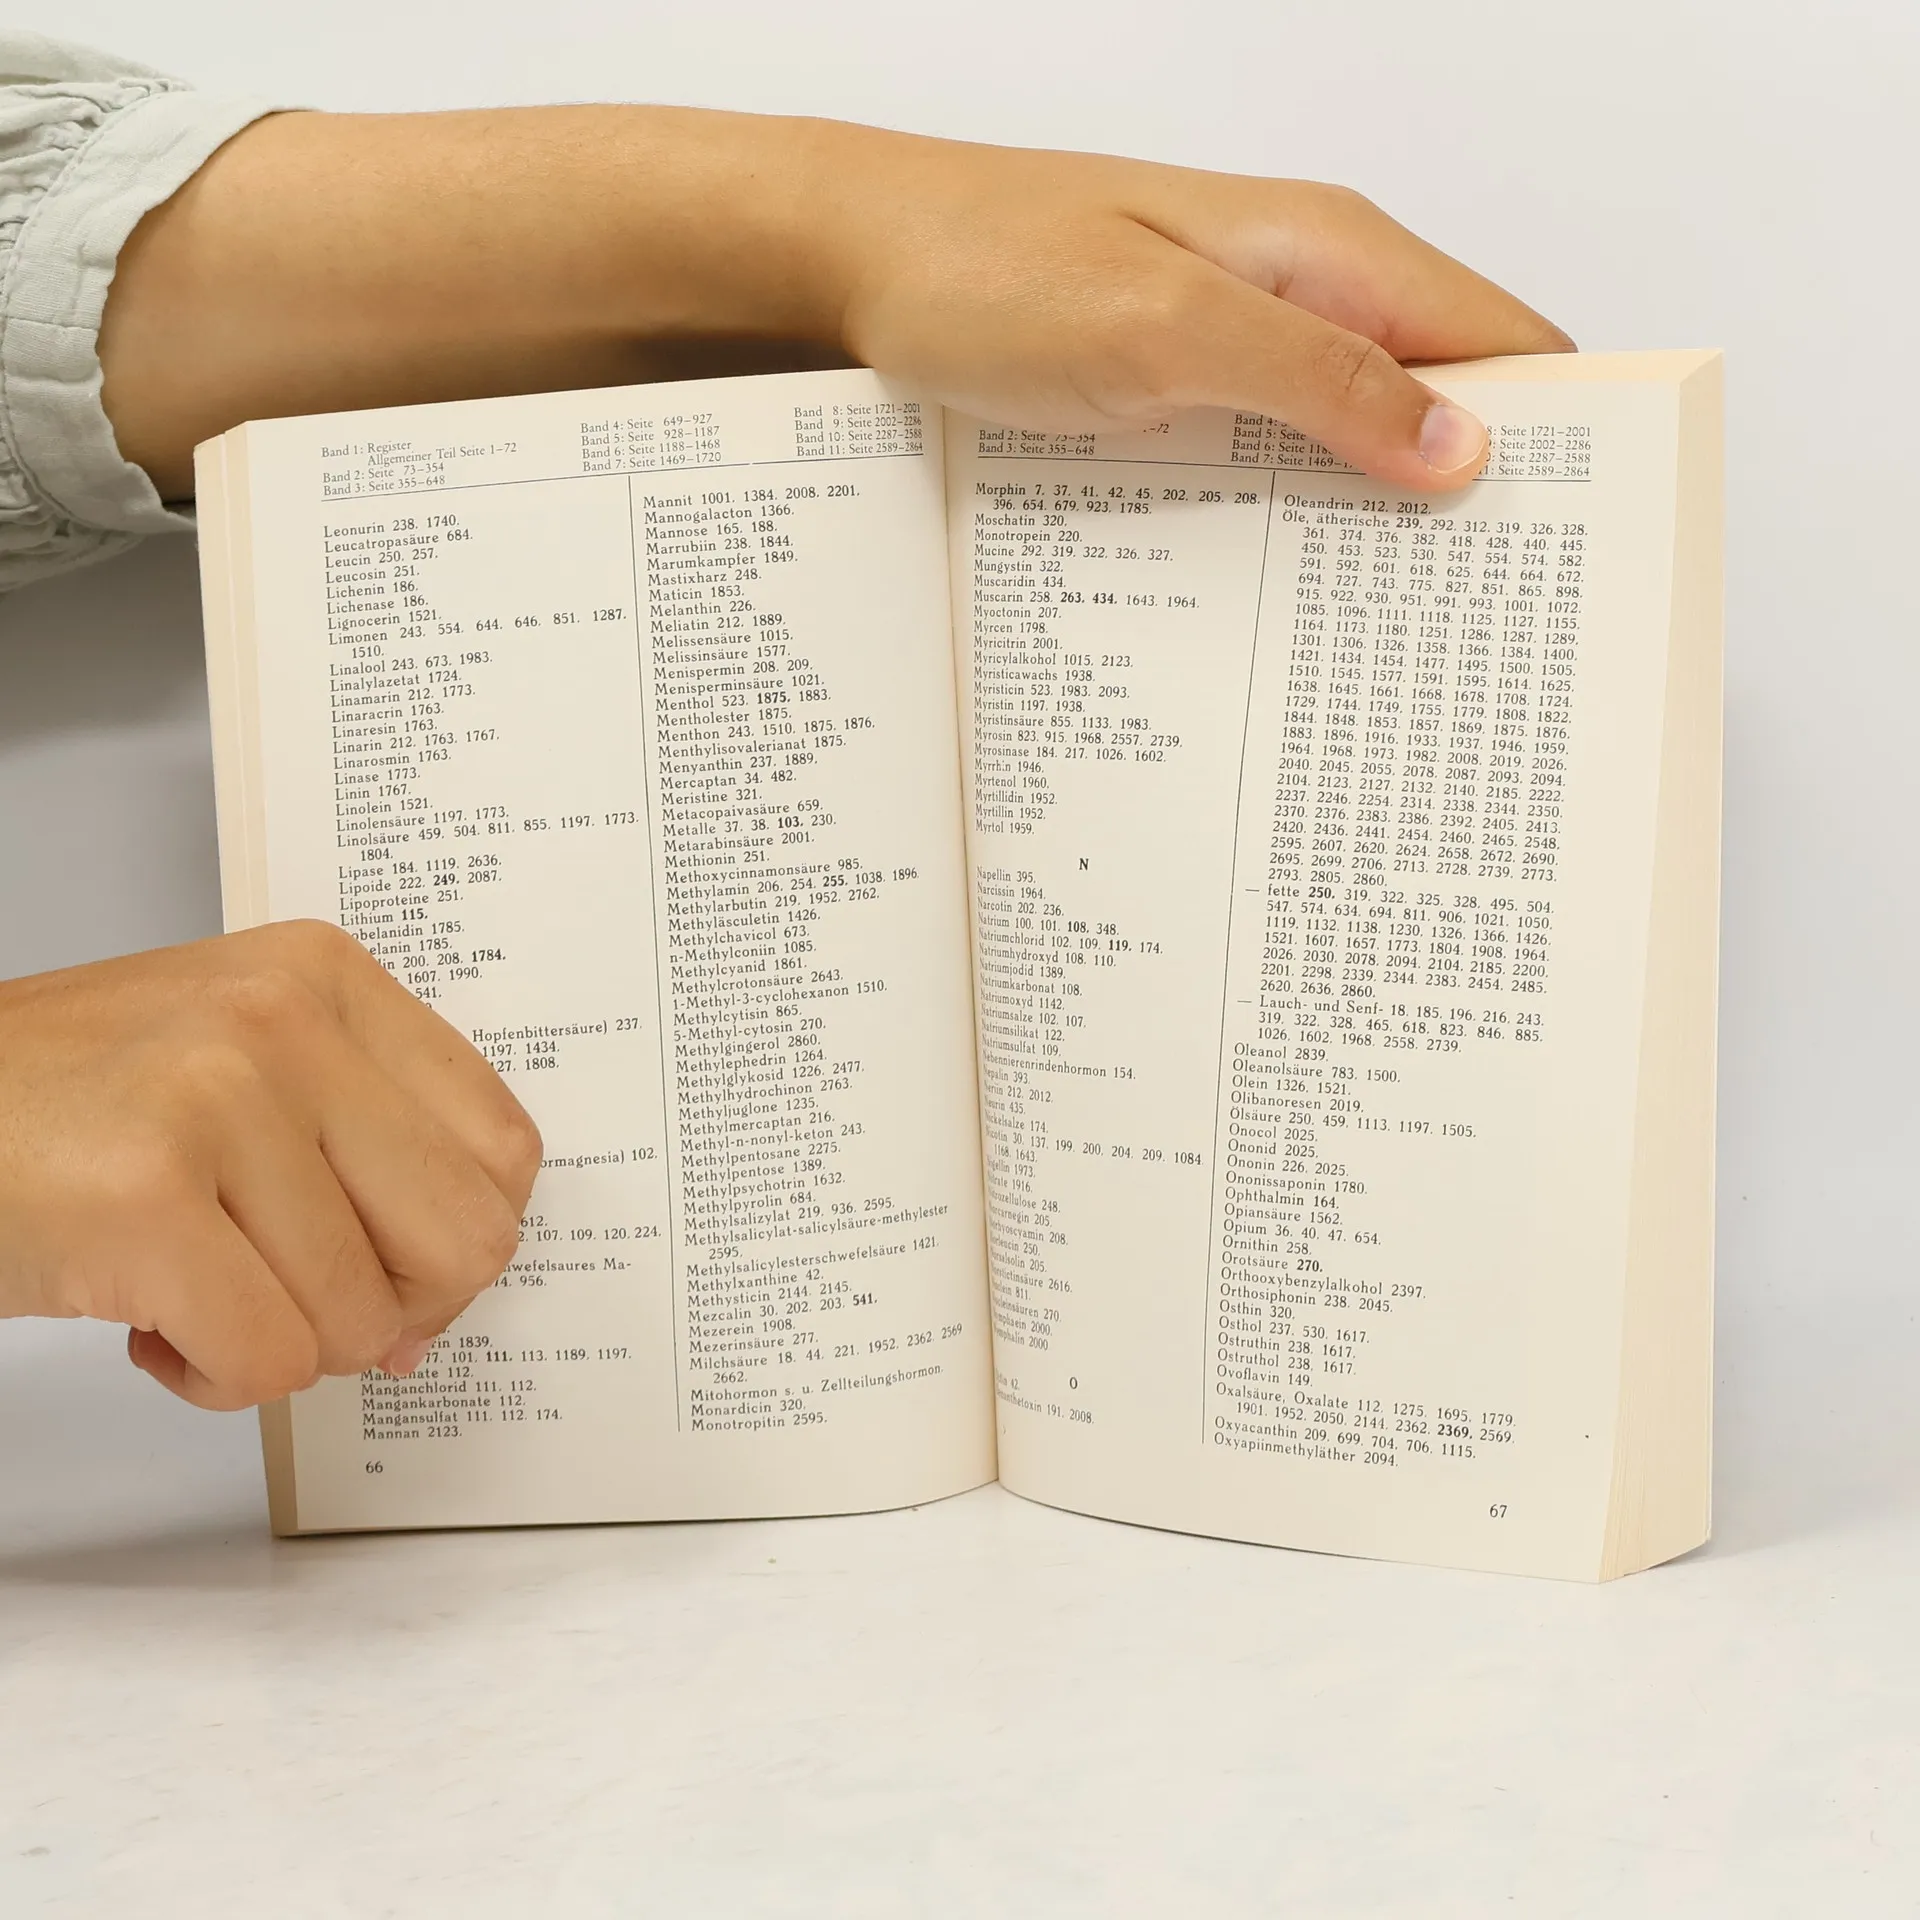 Band 1: Register
Allgemeiner Teil Seite 1–72
Band 2: Seite 73–354
Band 3: Seite 355–648
Band 4: Seite 649–927
Band 5: Seite 928–1187
Band 6: Seite 1188–1468
Band 7: Seite 1469–1720
Band 8: Seite 1721–2001
Band 9: Seite 2002–2286
Band 10: Seite 2287–2588
Band 11: Seite 2589–2864
Leonurin 238. 1740.
Leucatropasäure 684.
Leucin 250. 257.
Leucosin 251.
Lichenin 186.
Lichenase 186.
Lignocerin 1521.
Limonen 243. 554. 644. 646. 851. 1287.
1510.
Linalool 243. 673. 1983.
Linalylazetat 1724.
Linamarin 212. 1773.
Linaracrin 1763.
Linaresin 1763.
Linarin 212. 1763. 1767.
Linarosmin 1763.
Linase 1773.
Linin 1767.
Linolein 1521.
Linolensäure 1197. 1773.
Linolsäure 459. 504. 811. 855. 1197. 1773.
1804.
Lipase 184. 1119. 2636.
Lipoide 222. 249. 2087.
Lipoproteine 251.
Lithium 115.
obelanidin 1785.
elanin 1785.
in 200. 208. 1784.
1607. 1990.
541.
Hopfenbittersäure) 237.
1197. 1434.
127. 1808.
ormagnesia) 102.
612.
2. 107. 109. 120. 224.
wefelsaures Ma-
74. 956.
rin 1839.
77. 101. 111. 113. 1189. 1197.
Manganate 112.
Manganchlorid 111. 112.
Mangankarbonate 112.
Mangansulfat 111. 112. 174.
Mannan 2123.
Mannit 1001. 1384. 2008. 2201.
Mannogalacton 1366.
Mannose 165. 188.
Marrubiin 238. 1844.
Marumkampfer 1849.
Mastixharz 248.
Maticin 1853.
Melanthin 226.
Meliatin 212. 1889.
Melissensäure 1015.
Melissinsäure 1577.
Menispermin 208. 209.
Menisperminsäure 1021.
Menthol 523. 1875. 1883.
Mentholester 1875.
Menthon 243. 1510. 1875. 1876.
Menthylisovalerianat 1875.
Menyanthin 237. 1889.
Mercaptan 34. 482.
Meristine 321.
Metacopaivasäure 659.
Metalle 37. 38. 103. 230.
Metarabinsäure 2001.
Methionin 251.
Methoxycinnamonsäure 985.
Methylamin 206. 254. 255. 1038. 1896.
Methylarbutin 219. 1952. 2762.
Methyläsculetin 1426.
Methylchavicol 673.
n-Methylconiin 1085.
Methylcyanid 1861.
Methylcrotonsäure 2643.
1-Methyl-3-cyclohexanon 1510.
Methylcytisin 865.
5-Methyl-cytosin 270.
Methylgingerol 2860.
Methylephedrin 1264.
Methylglykosid 1226. 2477.
Methylhydrochinon 2763.
Methyljuglone 1235.
Methylmercaptan 216.
Methyl-n-nonyl-keton 243.
Methylpentosane 2275.
Methylpentose 1389.
Methylpsychotrin 1632.
Methylpyrolin 684.
Methylsalizylat 219. 936. 2595.
Methylsalicylat-salicylsäure-methylester
2595.
Methylsalicylesterschwefelsäure 1421.
Methylxanthine 42.
Methysticin 2144. 2145.
Mezcalin 30. 202. 203. 541.
Mezerein 1908.
Mezerinsäure 277.
Milchsäure 18. 44. 221. 1952. 2362. 2569
2662.
Mitohormon s. u. Zellteilungshormon.
Monardicin 320.
Monotropitin 2595.
66
–72
Band 2: Seite 73–354
Band 3: Seite 355–648
Band 4:
Band 5: Seite
Band 6: Seite 118
Band 7: Seite 1469–1
8: Seite 1721–2001
9: Seite 2002–2286
0: Seite 2287–2588
11: Seite 2589–2864
Morphin 7. 37. 41. 42. 45. 202. 205. 208.
396. 654. 679. 923. 1785.
Moschatin 320.
Monotropein 220.
Mucine 292. 319. 322. 326. 327.
Mungystin 322.
Muscaridin 434.
Muscarin 258. 263. 434. 1643. 1964.
Myoctonin 207.
Myrcen 1798.
Myricitrin 2001.
Myricylalkohol 1015. 2123.
Myristicawachs 1938.
Myristicin 523. 1983. 2093.
Myristin 1197. 1938.
Myristinsäure 855. 1133. 1983.
Myrosin 823. 915. 1968. 2557. 2739.
Myrosinase 184. 217. 1026. 1602.
Myrrhin 1946.
Myrtenol 1960.
Myrtillidin 1952.
Myrtillin 1952.
Myrtol 1959.
N
Napellin 395.
Narcissin 1964.
Narcotin 202. 236.
Natrium 100. 101. 108. 348.
Natriumchlorid 102. 109. 119. 174.
Natriumhydroxyd 108. 110.
Natriumjodid 1389.
Natriumkarbonat 108.
Natriumoxyd 1142.
Natriumsalze 102. 107.
Natriumsilikat 122.
Natriumsulfat 109.
Nebennierenrindenhormon 154.
Nepalin 393.
Neriin 212. 2012.
Neurin 435.
Nickelsalze 174.
Nicotin 30. 137. 199. 200. 204. 209. 1084.
1168. 1643.
Nigellin 1973.
Nitrate 1916.
Nitrozellulose 248.
205.
208.
250.
205.
2616.
811.
270.
2000.
2000
O
42.
191. 2008.
Oleandrin 212. 2012.
Öle, ätherische 239. 292. 312. 319. 326. 328.
361. 374. 376. 382. 418. 428. 440. 445.
450. 453. 523. 530. 547. 554. 574. 582.
591. 592. 601. 618. 625. 644. 664. 672.
694. 727. 743. 775. 827. 851. 865. 898.
915. 922. 930. 951. 991. 993. 1001. 1072.
1085. 1096. 1111. 1118. 1125. 1127. 1155.
1164. 1173. 1180. 1251. 1286. 1287. 1289.
1301. 1306. 1326. 1358. 1366. 1384. 1400.
1421. 1434. 1454. 1477. 1495. 1500. 1505.
1510. 1545. 1577. 1591. 1595. 1614. 1625.
1638. 1645. 1661. 1668. 1678. 1708. 1724.
1729. 1744. 1749. 1755. 1779. 1808. 1822.
1844. 1848. 1853. 1857. 1869. 1875. 1876.
1883. 1896. 1916. 1933. 1937. 1946. 1959.
1964. 1968. 1973. 1982. 2008. 2019. 2026.
2040. 2045. 2055. 2078. 2087. 2093. 2094.
2104. 2123. 2127. 2132. 2140. 2185. 2222.
2237. 2246. 2254. 2314. 2338. 2344. 2350.
2370. 2376. 2383. 2386. 2392. 2405. 2413.
2420. 2436. 2441. 2454. 2460. 2465. 2548.
2595. 2607. 2620. 2624. 2658. 2672. 2690.
2695. 2699. 2706. 2713. 2728. 2739. 2773.
2793. 2805. 2860.
— fette 250. 319. 322. 325. 328. 495. 504.
547. 574. 634. 694. 811. 906. 1021. 1050.
1119. 1132. 1138. 1230. 1326. 1366. 1426.
1521. 1607. 1657. 1773. 1804. 1908. 1964.
2026. 2030. 2078. 2094. 2104. 2185. 2200.
2201. 2298. 2339. 2344. 2383. 2454. 2485.
2620. 2636. 2860.
— Lauch- und Senf- 18. 185. 196. 216. 243.
319. 322. 328. 465. 618. 823. 846. 885.
1026. 1602. 1968. 2558. 2739.
Oleanol 2839.
Oleanolsäure 783. 1500.
Olein 1326. 1521.
Olibanoresen 2019.
Ölsäure 250. 459. 1113. 1197. 1505.
Onocol 2025.
Ononid 2025.
Ononin 226. 2025.
Ononissaponin 1780.
Ophthalmin 164.
Opiansäure 1562.
Opium 36. 40. 47. 654.
Ornithin 258.
Orotsäure 270.
Orthooxybenzylalkohol 2397.
Orthosiphonin 238. 2045.
Osthin 320.
Osthol 237. 530. 1617.
Ostruthin 238. 1617.
Ostruthol 238. 1617.
Ovoflavin 149.
Oxalsäure, Oxalate 112. 1275. 1695. 1779.
1901. 1952. 2050. 2144. 2362. 2369. 2569.
Oxyacanthin 209. 699. 704. 706. 1115.
Oxyapiinmethyläther 2094.
67